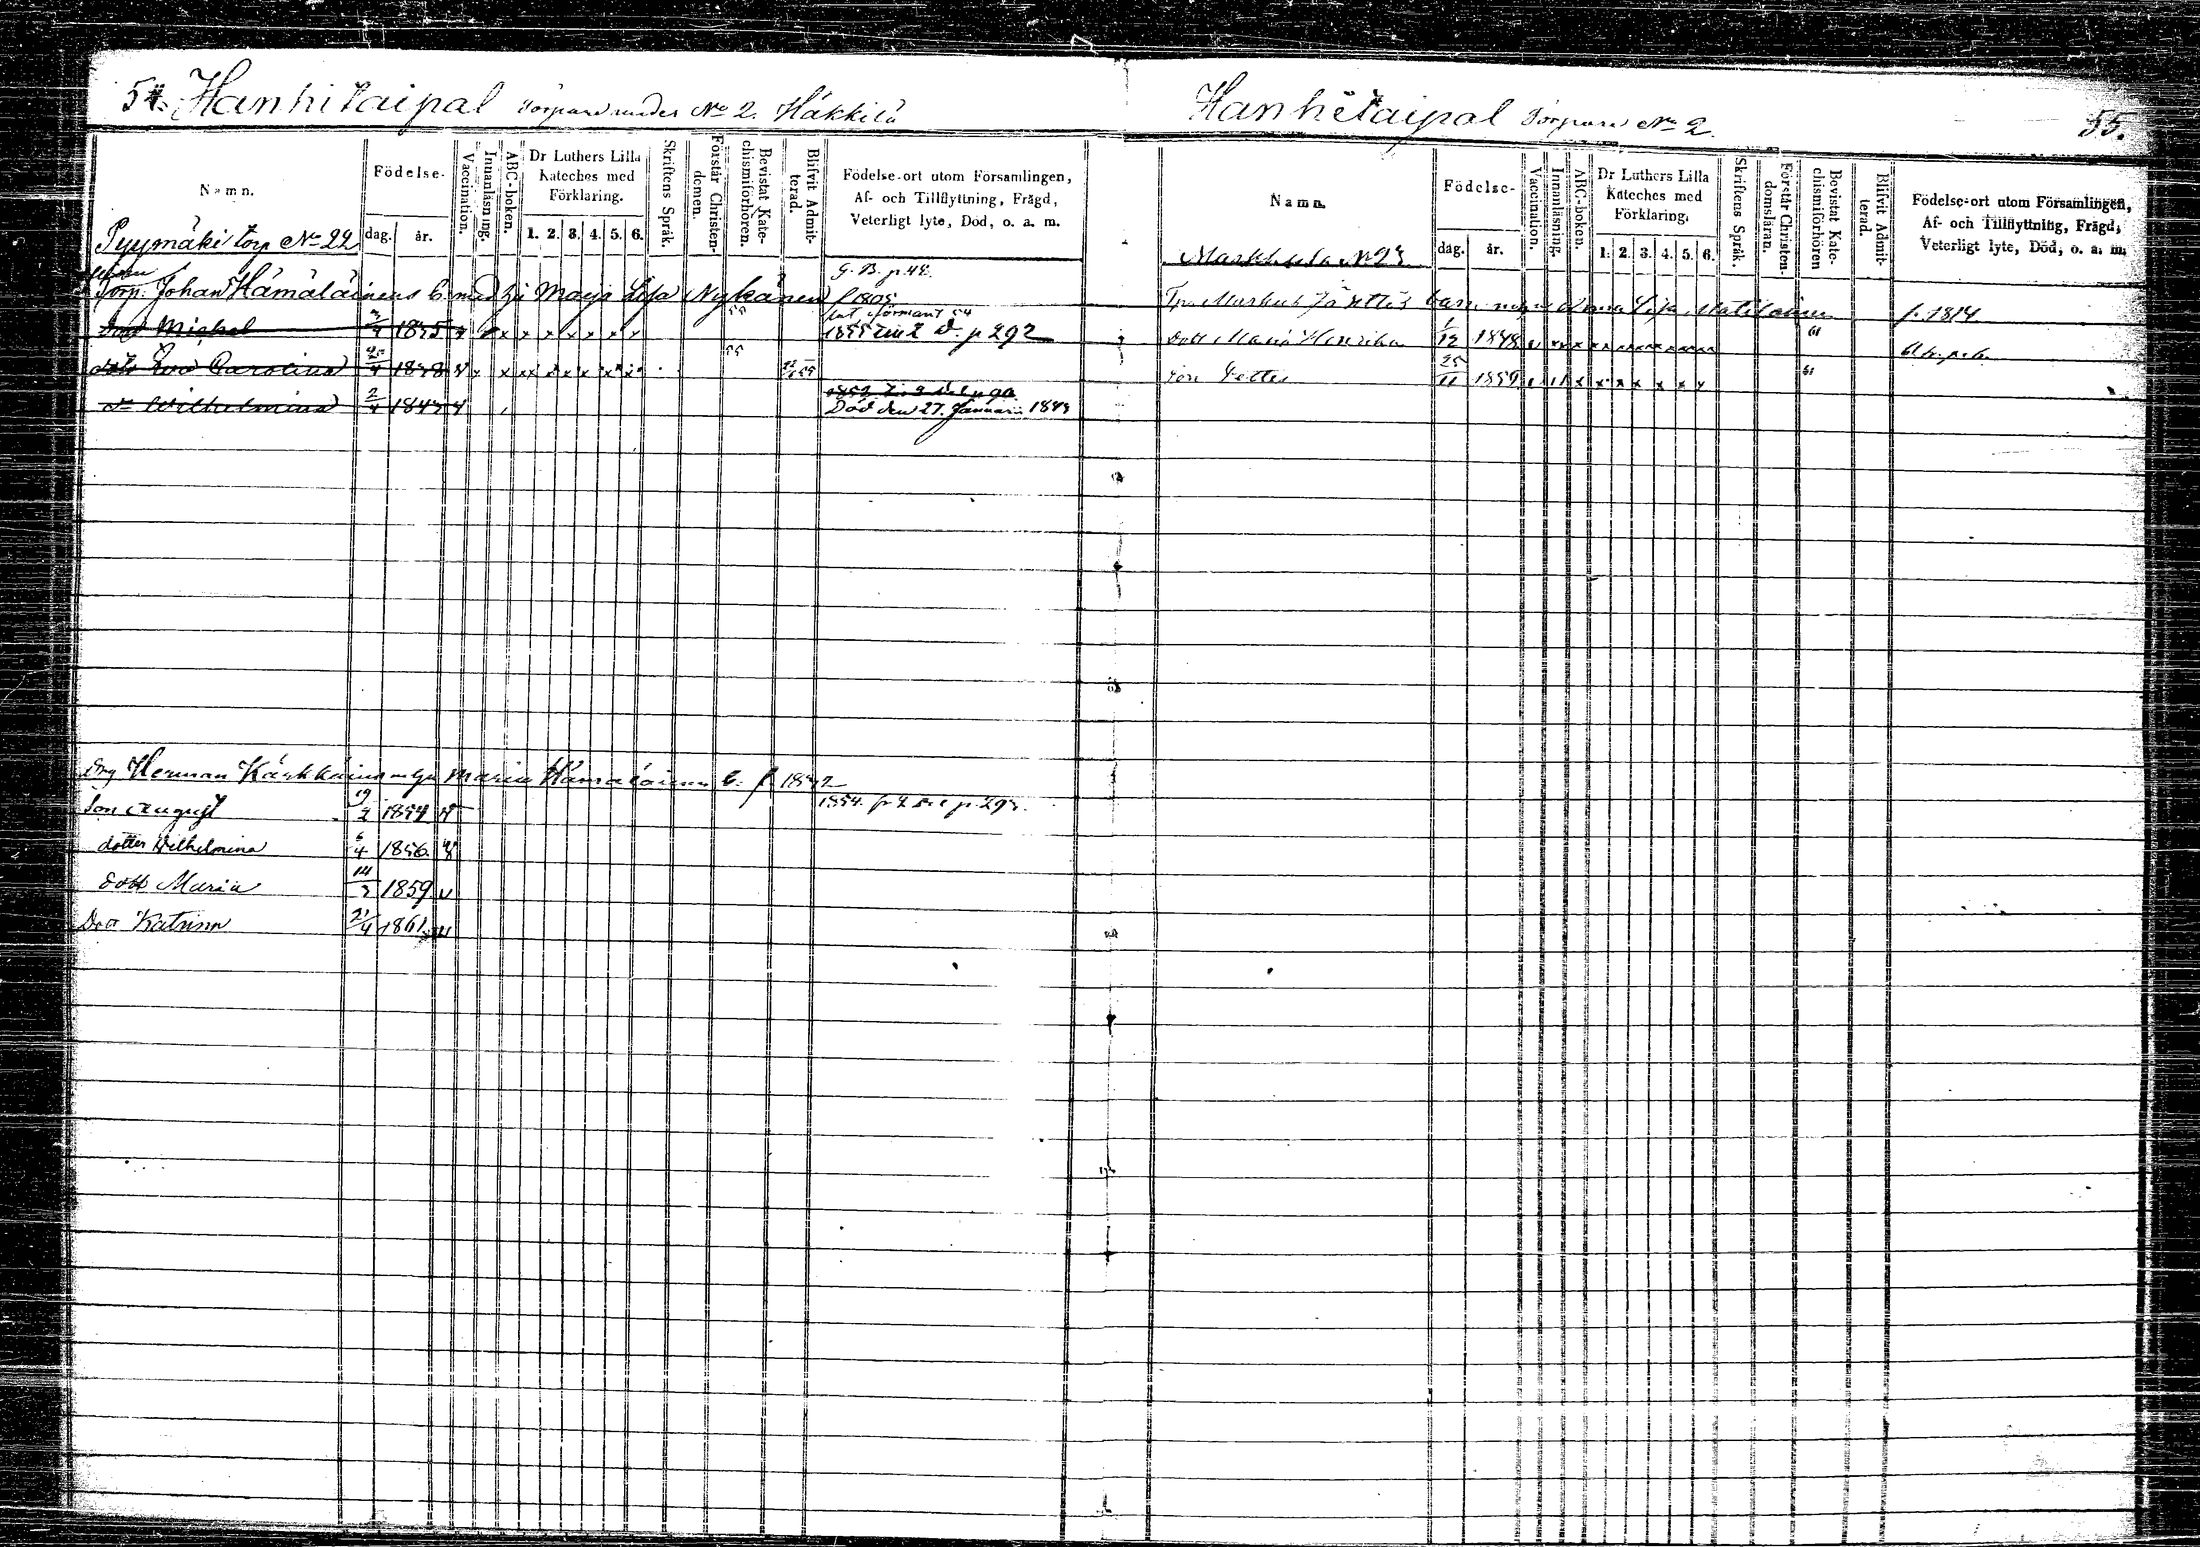 54. Hanhitaipal Torpare under No 2. Häkkilä
Namn.
Födelse-
dag. år.
Vaccination.
Innanläsning.
ABC-boken.
Dr Luthers Lilla Kateches med Förklaring.
1. 2. 3. 4. 5. 6.
Skriftens Språk.
Förstår Christendomen.
Bevistat Katechismiförhören.
Blifvit Admitterad.
Födelse-ort utom Församlingen, Af- och Tillflyttning, Frägd, Veterligt lyte, Död, o. a. m.
Pyymäki torp No 22
G. B. p. 44.
Torp. Johan Hämäläinens b. med Maja Lisa Nykänen f. 1805
Michel 1835 x x x x x x x 55 1855 p 292
Eva Carolina 1838 x x x x x x x 55
Wilhelmina 2/4 1843
Död den 27. Januari 1843
Herman Kärkkäinen Maria Hämäläinen b. f.
Son August 19/2 1854 1854. p. 293.
dotter Wilhelmina 6/4 1856
dott Maria 14/3 1859
Katrina 21/4 1861
Hanhitaipal Torpare No 2. 55.
Namn.
Födelse-
dag. år.
Vaccination.
Innanläsning.
ABC-boken.
Dr Luthers Lilla Kateches med Förklaring.
1. 2. 3. 4. 5. 6.
Skriftens Språk.
Förstår Christendomsläran.
Bevistat Katechismiförhören
Blifvit Admitterad.
Födelse-ort utom Församlingen, Af- och Tillflyttning, Frägd, Veterligt lyte, Död, o. a. m.
Markkula No 23
Markus Jänttis barn Anna Lisa f. 1814
Dott Maria Henrika 1/12 1848 61
Son Petter 25/11 1850 61